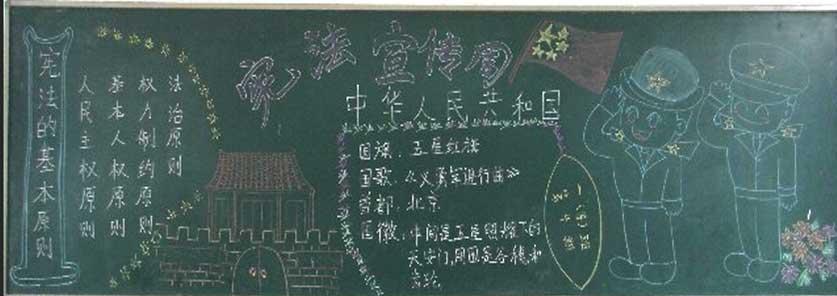 宪法宣传周
宪法的基本原则
人民主权原则
基本人权原则
权力制约原则
法治原则
中华人民共和国
国旗：五星红旗
国歌：《义勇军进行曲》
首都：北京
国徽：中间是五星照耀下的
天安门，周围是谷穗和
齿轮